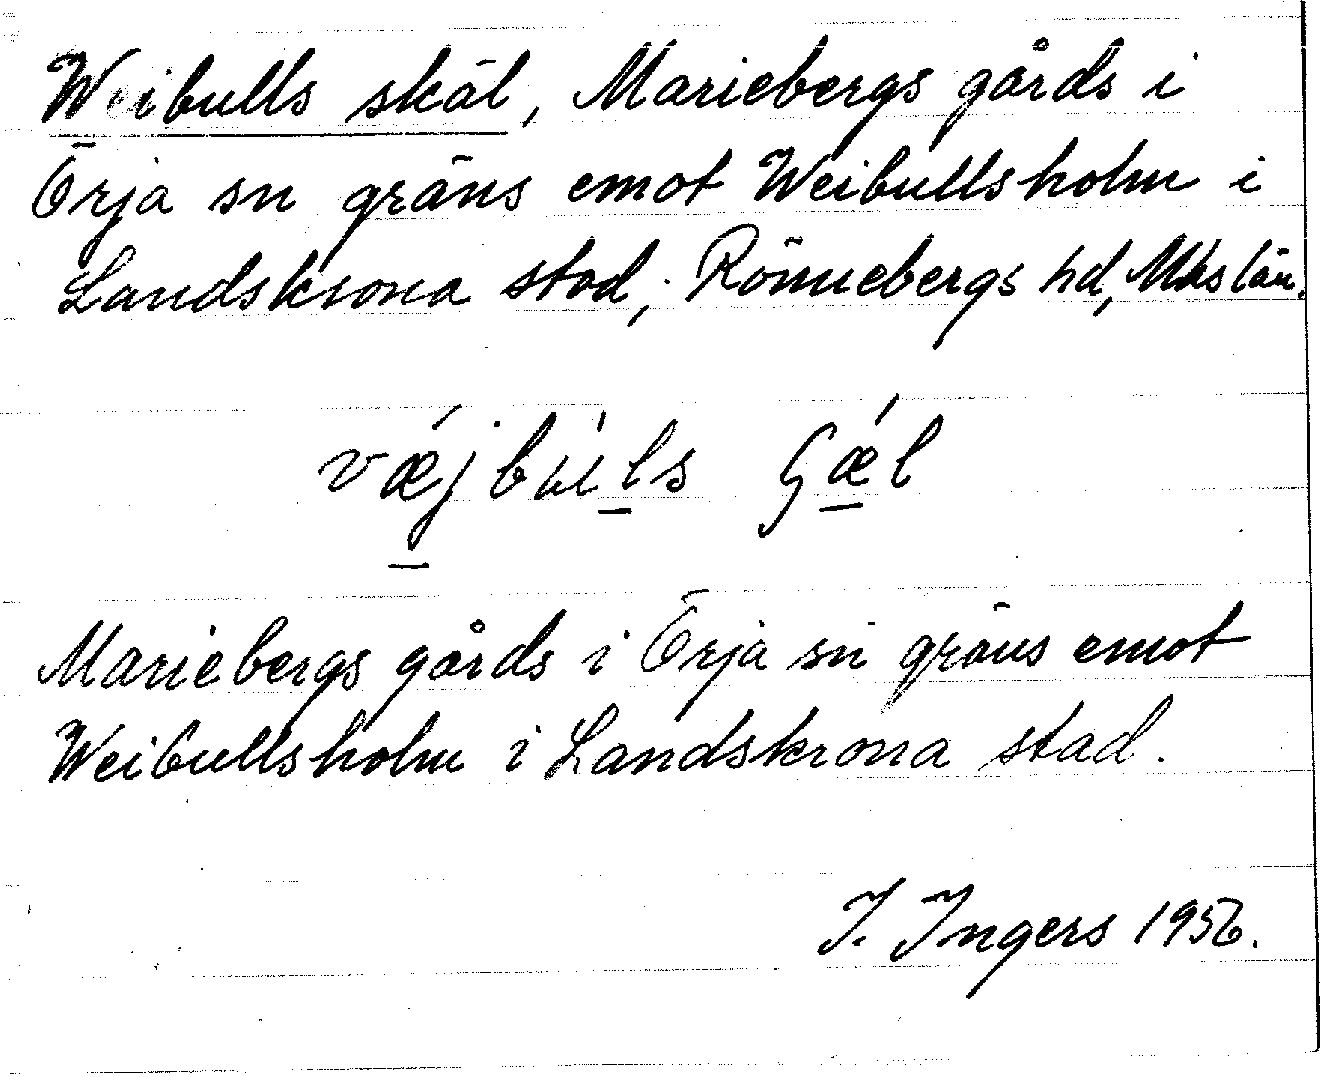 Weibulls skäl, Mariebergs gårds i
Örja sn gräns emot Weibullsholm i
Landskrona stad, Rönnebergs hd, Mhs län.
væjbuls Sæl
Mariebergs gårds i Örja sn gräns emot
Weibullsholm i Landskrona stad.
I. Ingers 1956.